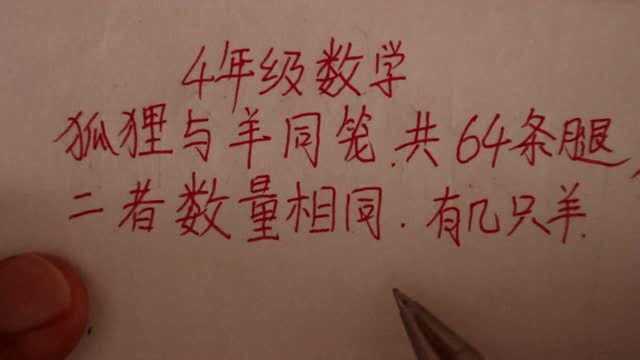 4年级数学
狐狸与羊同笼.共64条腿,
二者数量相同.有几只羊.